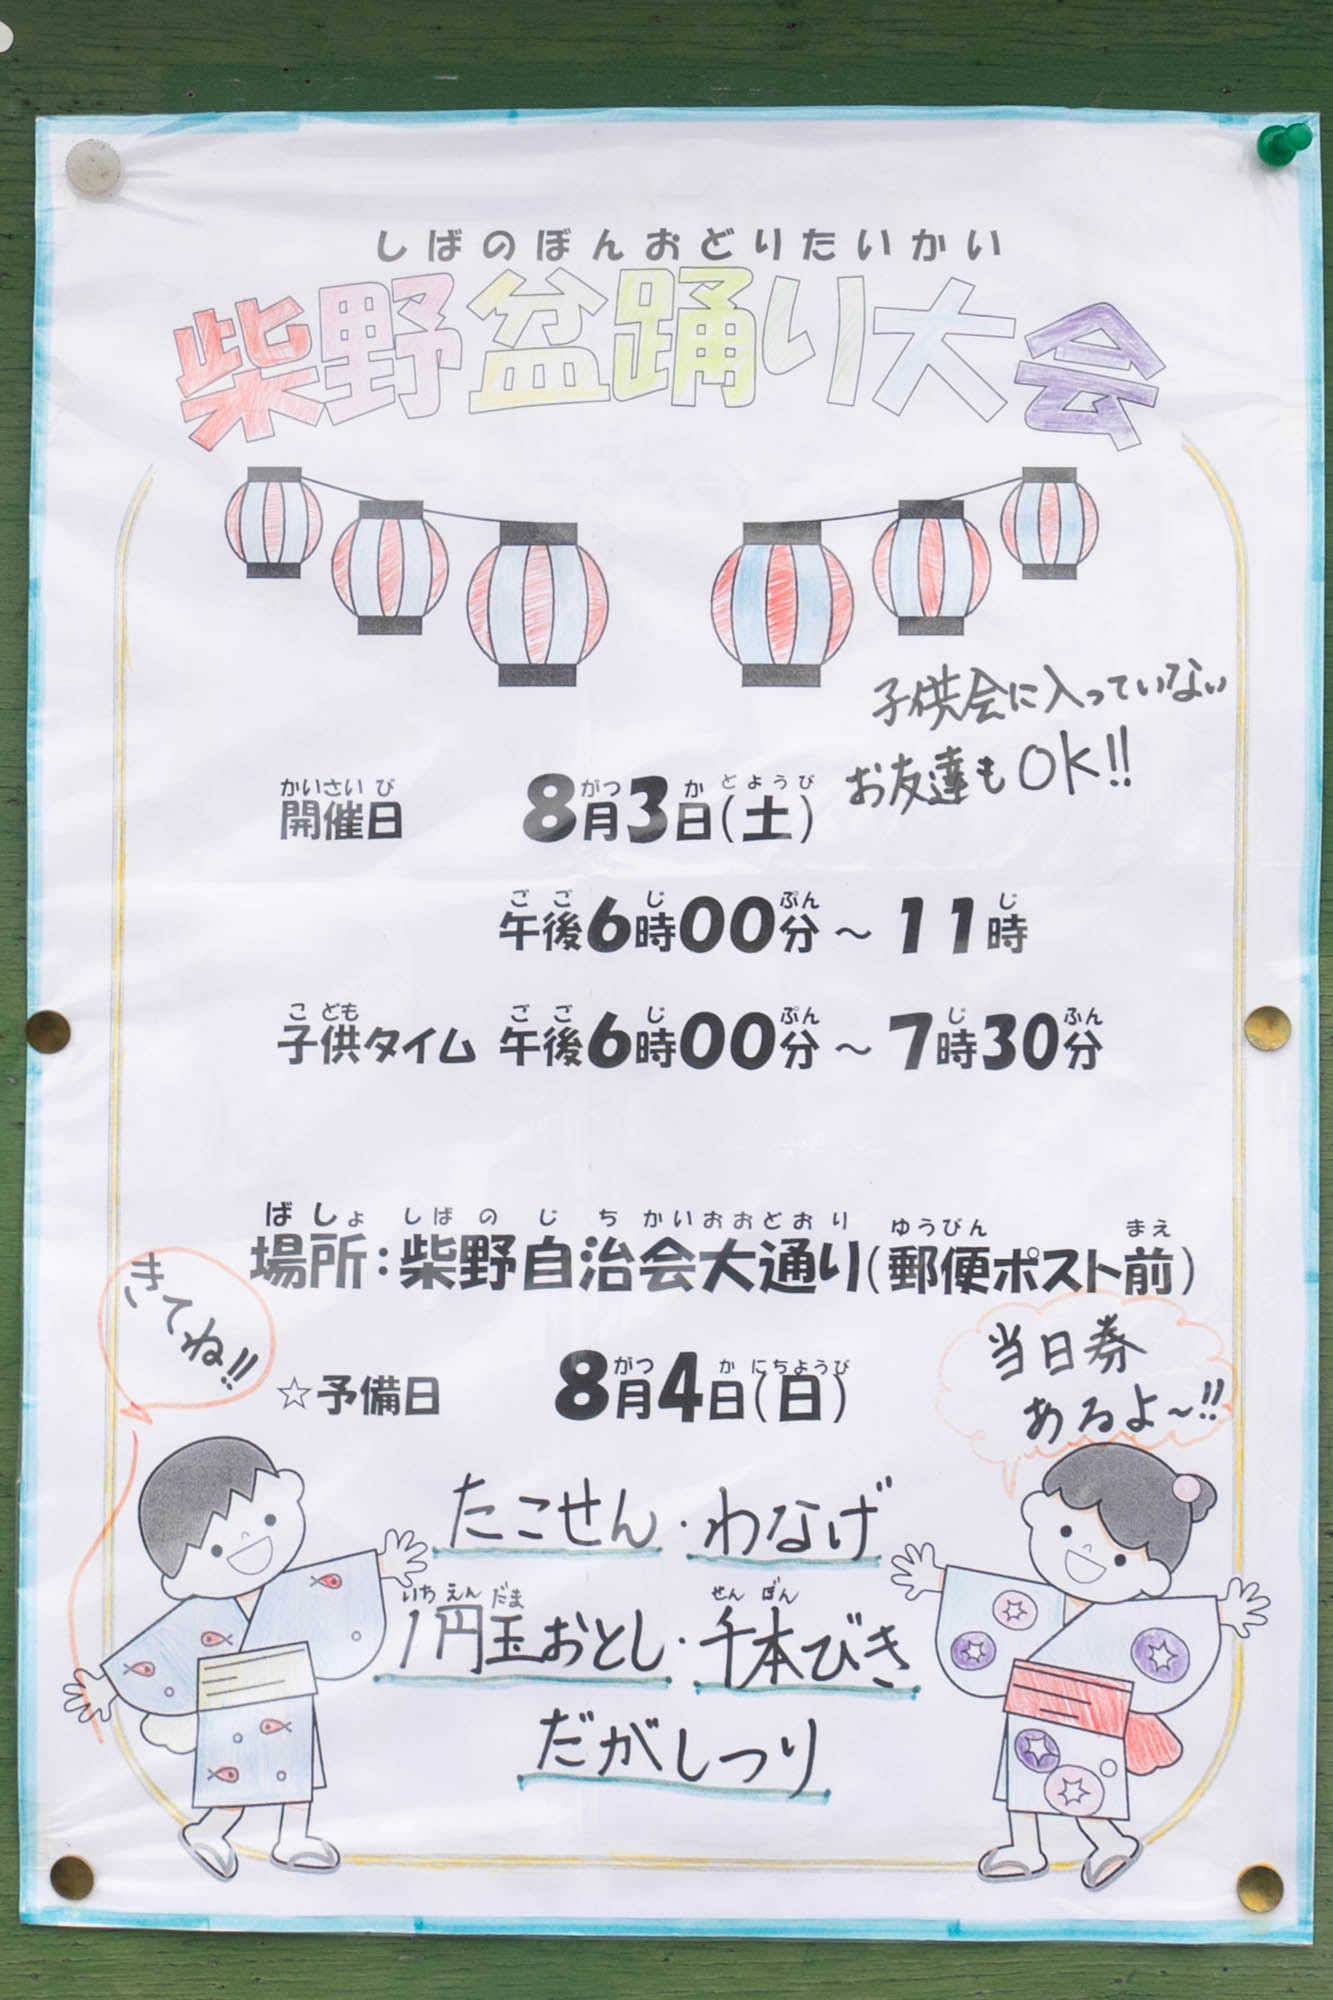 しばのぼんおどりたいかい
柴野盆踊り大会
子供会に入っていない
お友達もOK!!
かいさいび がつ か どようび
開催日 8月3日(土)
ごご じ ぷん じ
午後6時00分～11時
こども ごご じ ぷん じ ふん
子供タイム 午後6時00分～7時30分
ばしょ しばのじちかいおおどおり ゆうびん まえ
場所:柴野自治会大通り(郵便ポスト前)
きてね!!
がつ か にちようび
☆予備日 8月4日(日)
当日券
あるよ～!!
たこせん・わなげ
いちえんだま せんぼん
1円玉おとし・千本びき
だがしつり